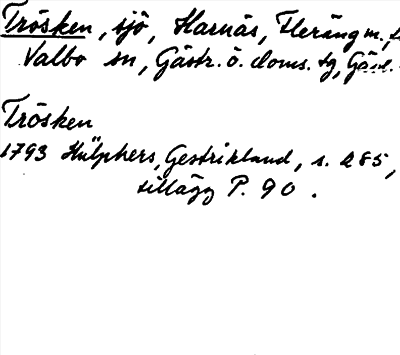 Trösken, sjö, Harnäs, Heräng m. fl.
Valbo sn, Gästr. ö. doms. tg, Gävl.
Trösken
1793 Hülphers, Gestrikland, s. 285,
tillägg P. 90.